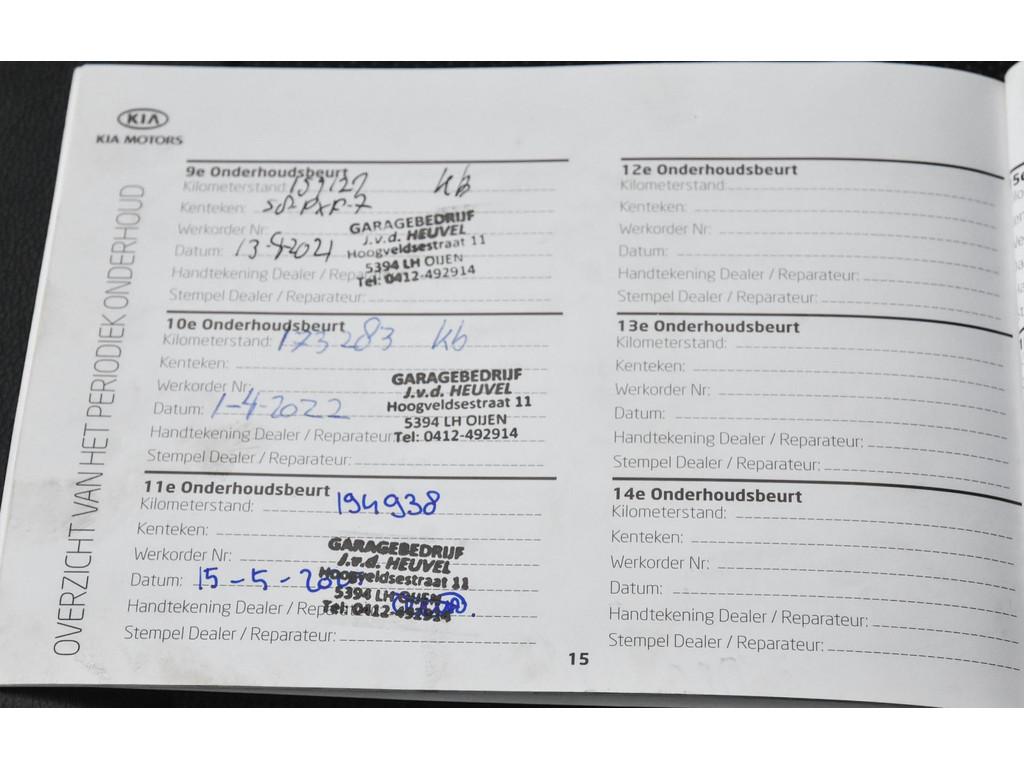 KIA
KIA MOTORS
OVERZICHT VAN HET PERIODIEK ONDERHOUD
9e Onderhoudsbeurt
Kilometerstand: kb
Kenteken:
Werkorder Nr:
Datum: 2021
Handtekening Dealer / Reparateur:
Stempel Dealer / Reparateur:
GARAGEBEDRIJF
J.v.d. HEUVEL
Hoogveldsestraat 11
5394 LH OIJEN
Tel: 0412-492914
10e Onderhoudsbeurt
Kilometerstand: 173283 kb
Kenteken:
Werkorder Nr:
Datum: 1-4-2022
Handtekening Dealer / Reparateur
Stempel Dealer / Reparateur:
GARAGEBEDRIJF
J.v.d. HEUVEL
Hoogveldsestraat 11
5394 LH OIJEN
Tel: 0412-492914
11e Onderhoudsbeurt
Kilometerstand: 194938
Kenteken:
Werkorder Nr:
Datum: 15-5-
Handtekening Dealer /
Stempel Dealer / Reparateur:
GARAGEBEDRIJF
J.v.d. HEUVEL
Hoogveldsestraat 11
5394 LH OIJEN
Tel: 0412-492914
15
12e Onderhoudsbeurt
Kilometerstand:
Kenteken:
Werkorder Nr:
Datum:
Handtekening Dealer / Reparateur:
Stempel Dealer / Reparateur:
13e Onderhoudsbeurt
Kilometerstand:
Kenteken:
Werkorder Nr:
Datum:
Handtekening Dealer / Reparateur:
Stempel Dealer / Reparateur:
14e Onderhoudsbeurt
Kilometerstand:
Kenteken:
Werkorder Nr:
Datum:
Handtekening Dealer / Reparateur:
Stempel Dealer / Reparateur: